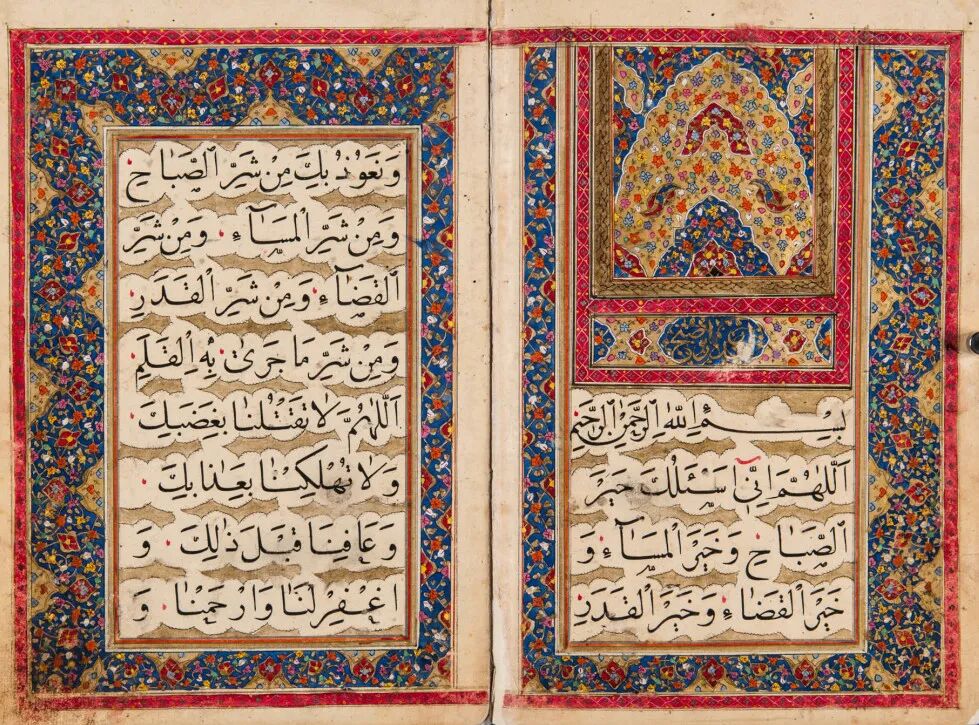 بِسْمِ اللهِ الرَّحْمٰنِ الرَّحِيْمِ
اَللّٰهُمَّ اِنِّىٓ اَسْئَلُكَ خَيْرَ
الصَّبَاحِ وَخَيْرَ الْمَسَآءِ وَ
خَيْرَ الْقَضَآءِ وَخَيْرَ الْقَدَرِ
وَنَعُوْذُ بِكَ مِنْ شَرِّ الصَّبَاحِ
وَمِنْ شَرِّ الْمَسَآءِ وَمِنْ شَرِّ
الْقَضَآءِ وَمِنْ شَرِّ الْقَدَرِ
وَمِنْ شَرِّ مَا جَرٰى بِهِ الْقَلَمِ
اَللّٰهُمَّ لَا تَقْتُلْنَا بِغَضَبِكَ
وَلَا تُهْلِكْنَا بِعَذَابِكَ
وَعَافِنَا قَبْلَ ذٰلِكَ وَ
اغْفِرْ لَنَا وَارْحَمْنَا وَ